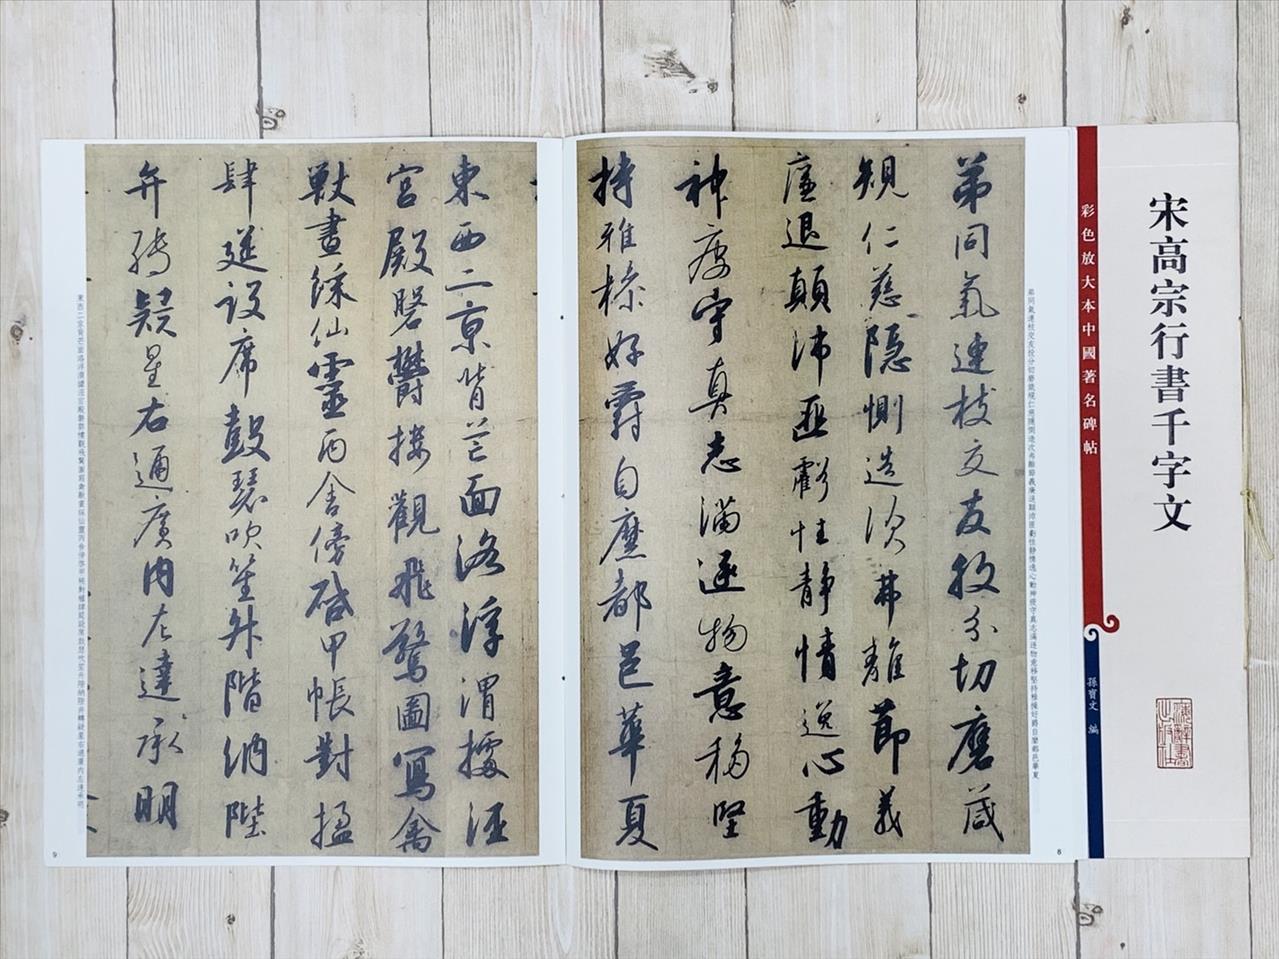 宋高宗行書千字文
彩色放大本中國著名碑帖
孫寶文 編
弟同氣連枝交友投分切磨箴
規仁慈隱惻造次弗離節義
廉退顛沛匪虧性靜情逸心動
神疲守真志滿逐物意移堅
持雅操好爵自縻都邑華夏
8
東西二京背芒面洛浮渭據涇
宮殿盤鬱樓觀飛驚圖寫禽
獸畫綵仙靈丙舍傍啟甲帳對楹
肆筵設席鼓瑟吹笙升階納陛
弁轉疑星右通廣內左達承明
9